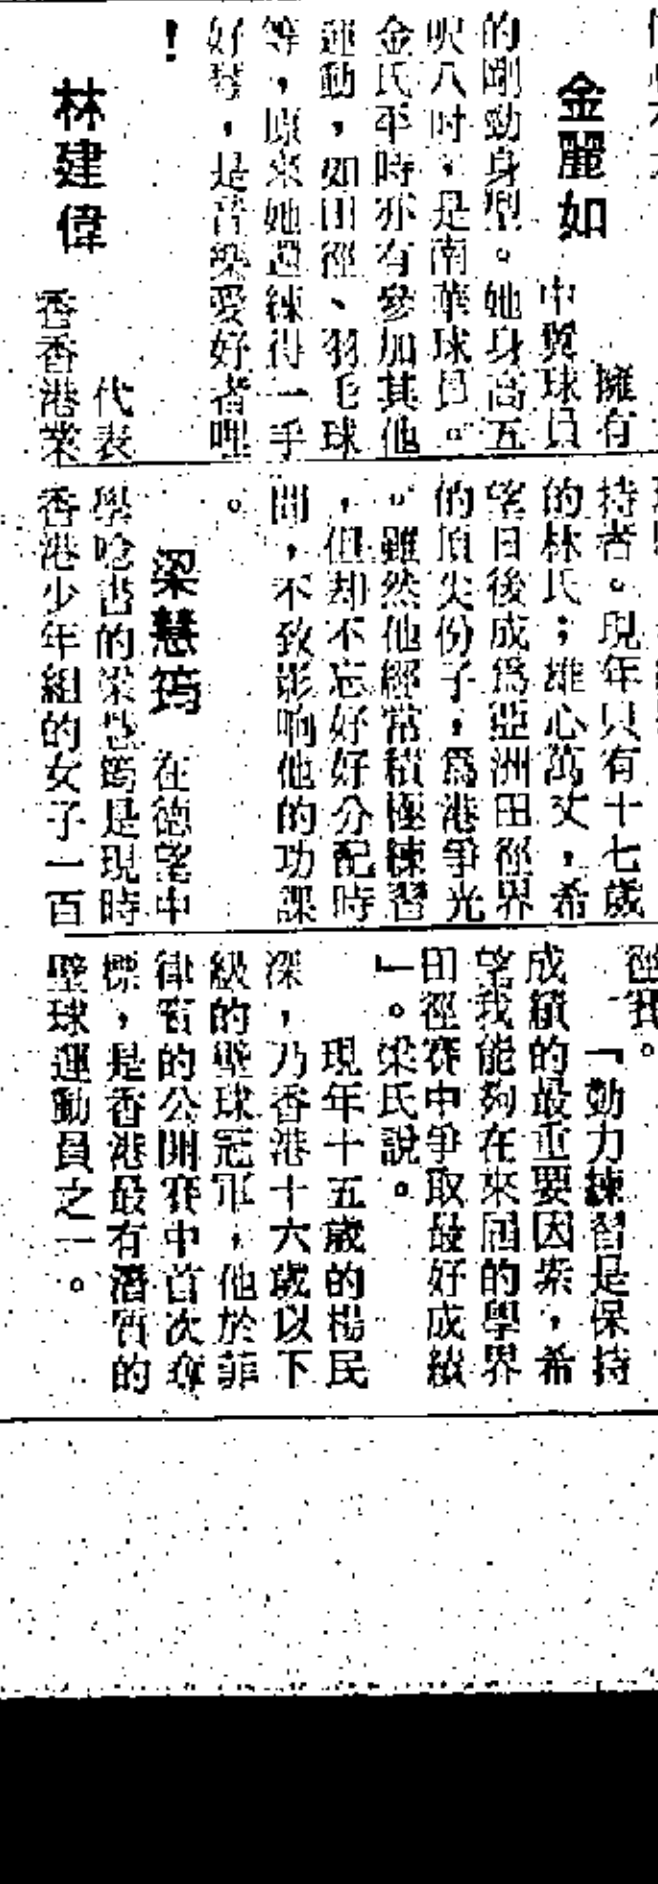 金麗如
擁有
中翼球員
的剛勁身型。她身高五
呎八吋，是南華球員。
金氏平時亦有參加其他
運動，如田徑、羽毛球
等，原來她還練得一手
好琴，是音樂愛好者哩
！
林建偉
代表
香港業
持者。現年只有十七歲
的林氏；雄心萬丈，希
望日後成爲亞洲田徑界
的頂尖份子，爲港爭光
。雖然他經常積極練習
，但却不忘好好分配時
間，不致影响他的功課
。
梁慧筠
在德望中
學唸書的梁慧筠是現時
香港少年組的女子一百
徑賽。
「勤力練習是保持
成績的最重要因素，希
望我能夠在來屆的學界
田徑賽中爭取最好成績
」。梁氏說。
現年十五歲的楊民
深，乃香港十六歲以下
級的壁球冠軍，他於菲
律賓的公開賽中首次奪
標，是香港最有潛質的
壁球運動員之一。